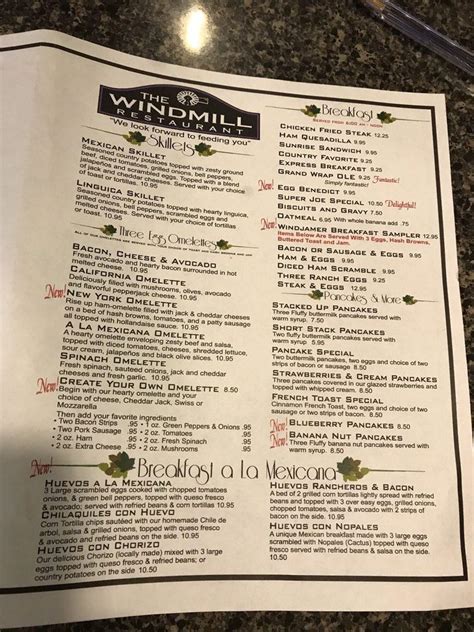 THE
WINDMILL
RESTAURANT
"We look forward to feeding you"
Skillets
Mexican Skillet
Seasoned country potatoes topped with zesty ground
beef, diced tomatoes, grilled onions, bell peppers,
jalapeños and scrambled eggs. Topped with a blend
of cheeses. Served with your choice of toast
or tortillas. 10.95
Linguica Skillet
Seasoned country potatoes topped with hearty linguica,
grilled onions, bell peppers, scrambled eggs and
melted cheese. Served with your choice of tortillas
or toast. 10.95
Three Egg Omelettes
Bacon, Cheese & Avocado
Fresh avocado and hearty bacon surrounded in hot
melted cheese. 10.95
California Omelette
Deliciously filled with mushrooms, olives, avocado
and flavorful pepperjack cheese. 10.95
New! New York Omelette
Rise up ham-omelette filled with jack & cheddar cheeses
on a bed of hash browns, tomatoes, and a patty sausage
all topped with hollandaise sauce. 10.95
A La Mexicana Omelette
A hearty omelette enveloping zesty beef and salsa,
topped with diced tomatoes, cheeses, shredded lettuce,
sour cream, jalapeños and black olive slices. 10.95
Spinach Omelette
Fresh spinach, sauteed onions, jack and cheddar
cheeses and crisp bacon. 10.50
New! Create Your Own Omelette 8.50
Begin with our hearty omelette and your
choice of cheese, Cheddar Jack, Swiss or
Mozzarella
Then add your favorite ingredients
• Two Bacon Strips .95 • 1 oz. Green Peppers & Onions .95
• Two Pork Sausage .95 • 2 oz. Tomatoes .95
• 2 oz. Ham .95 • 2 oz. Fresh Spinach .95
• 2 oz. Extra Cheese .95 • 2 oz. Mushrooms .95
Breakfast
Served from 6:00 am - Noon
Chicken Fried Steak 12.25
Ham Quesadilla 9.25
Sunrise Sandwich 9.25
Country Favorite 9.25
Express Breakfast 9.25
Grand Wrap Ole 9.25 Fantastic!
Simply fantastic!
New! Egg Benedict 9.25
Super Joe Special 10.50 Delightful!
Biscuits and Gravy 7.50
Oatmeal 6.95 With whole banana adds .75
New! Windjamer Breakfast Sampler 12.95
Items Below Are Served With 3 Eggs, Hash Browns,
Buttered Toast and Jam.
Bacon or Sausage & Eggs 9.95
Ham & Eggs 9.95
Diced Ham Scramble 9.95
Three Ranch Eggs 9.25
Steak & Eggs 12.95
Pancakes & More
Stacked Up Pancakes
Three Fluffy buttermilk pancakes served with
warm syrup. 7.50
Short Stack Pancakes
Two fluffy buttermilk pancakes served with
warm syrup. 6.95
Pancake Special
Two buttermilk pancakes, two eggs and choice of
two strips bacon or sausage. 8.95
Strawberries & Cream Pancakes
Three pancakes covered in our glazed strawberries and
topped with whipped cream. 8.95
French Toast Special
Cinnamon French Toast, two eggs and choice of two
sausage or two strips of bacon. 8.95
New! Blueberry Pancakes 8.50
New! Banana Nut Pancakes
Three Fluffy banana nut pancakes served with
warm syrup. 8.50
New! Breakfast a La Mexicana
Huevos a La Mexicana
3 Large scrambled eggs cooked with chopped tomatoes,
onions, & green bell peppers, topped with queso fresco
& avocado; served w/ refried beans & corn tortillas 10.95
Chilaquiles con Huevo
Corn Tortilla chips sautéed with our homemade Chile de
arbol, salsa & grilled onions, topped with 3 large
eggs any style & refried beans on the side. 10.95
Huevos con Chorizo
Our delicious Chorizo (locally made) mixed with 3 large
scrambled eggs; topped w/queso fresco & refried beans or
country potatoes on the side. 10.50
Huevos Rancheros & Bacon
A bed of 2 grilled corn tortillas lightly spread with refried
beans and topped with 3 over easy eggs, grilled onions,
chopped tomatoes, salsa & avocado with 2 strips of
bacon on the side. 10.95
Huevos con Nopales
A unique Mexican breakfast made with 3 large eggs
scrambled with Nopales (Cactus) topped with queso
fresco served with refried beans & salsa
on the side. 10.50